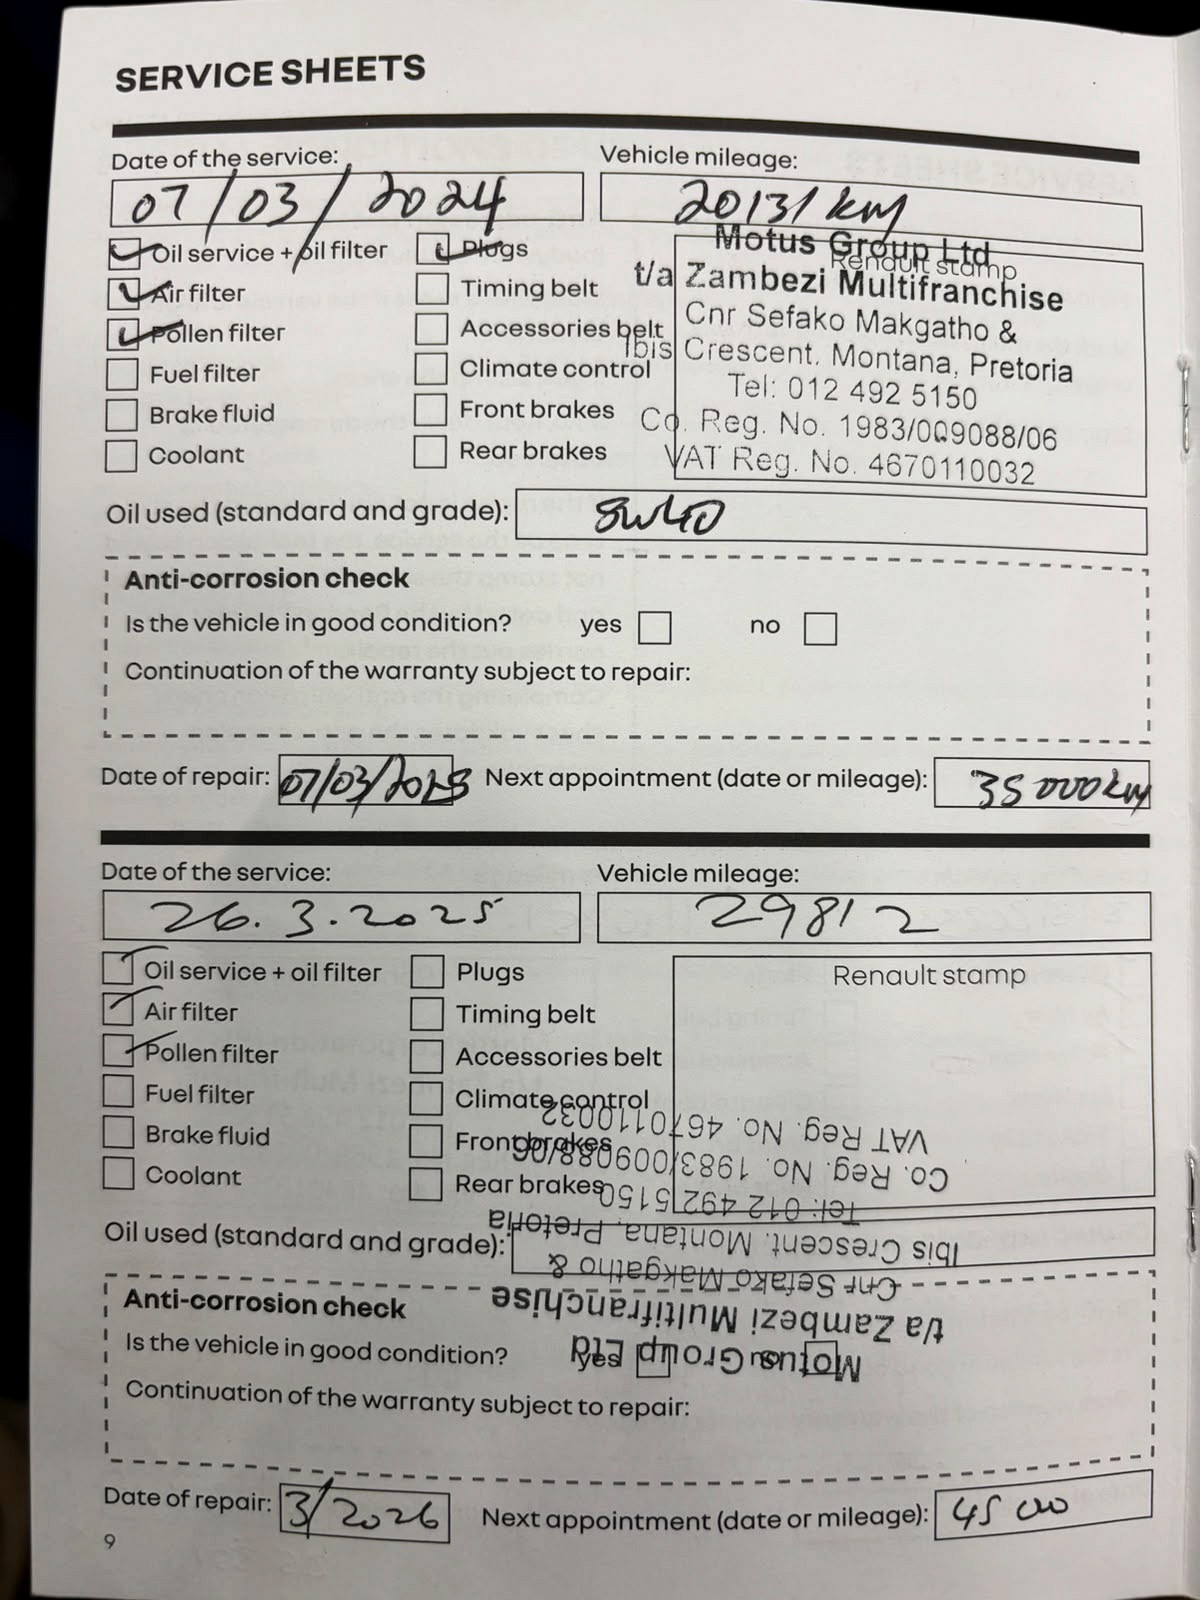 SERVICE SHEETS
Date of the service: Vehicle mileage:
07/03/2024 20131 km
Oil service + oil filter Plugs
Air filter Timing belt
Pollen filter Accessories belt
Fuel filter Climate control
Brake fluid Front brakes
Coolant Rear brakes
Renault stamp
Motus Group Ltd
t/a Zambezi Multifranchise
Cnr Sefako Makgatho &
Ibis Crescent. Montana, Pretoria
Tel: 012 492 5150
Co. Reg. No. 1983/009088/06
VAT Reg. No. 4670110032
Oil used (standard and grade):
Anti-corrosion check
Is the vehicle in good condition? yes no
Continuation of the warranty subject to repair:
Date of repair: 07/03/2025 Next appointment (date or mileage): 35 000 km
Date of the service: Vehicle mileage:
26.3.2025 29812
Oil service + oil filter Plugs
Air filter Timing belt
Pollen filter Accessories belt
Fuel filter Climate control
Brake fluid Front brakes
Coolant Rear brakes
Renault stamp
Motus Group Ltd
t/a Zambezi Multifranchise
Cnr Sefako Makgatho &
Ibis Crescent. Montana, Pretoria
Tel: 012 492 5150
Co. Reg. No. 1983/009088/06
VAT Reg. No. 4670110032
Oil used (standard and grade):
Anti-corrosion check
Is the vehicle in good condition? yes no
Continuation of the warranty subject to repair:
Date of repair: 3/2026 Next appointment (date or mileage): 45 000
9